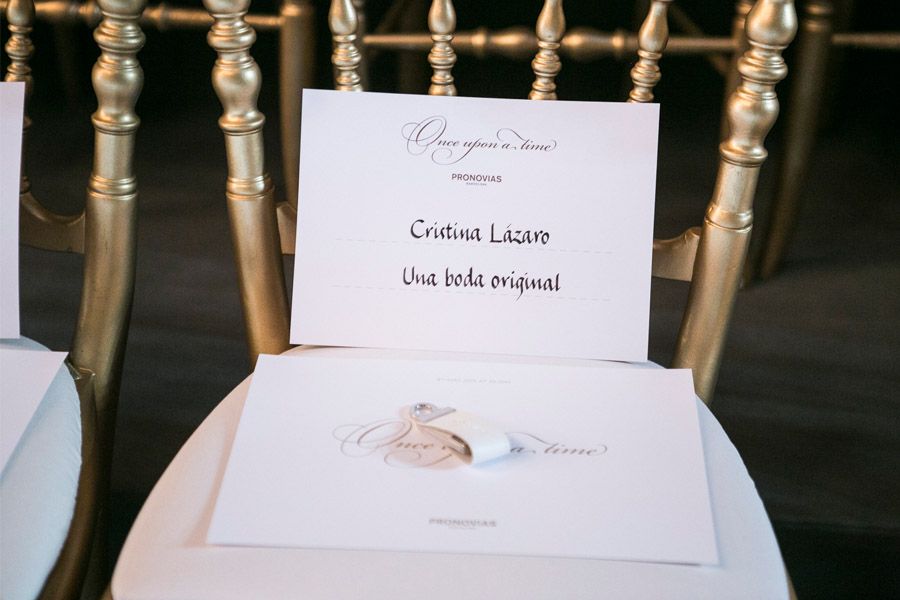 Once upon a time
PRONOVIAS
BARCELONA
Cristina Lázaro
Una boda original
Once a time
PRONOVIAS